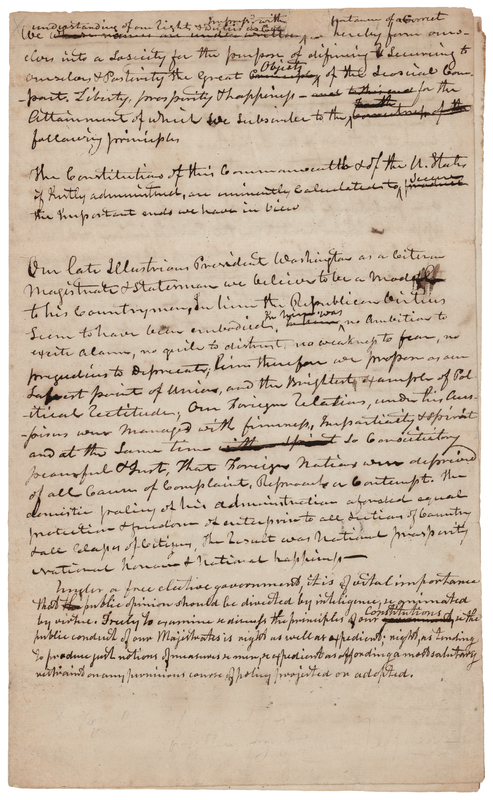 understanding of our rights & Duties as Cit impress with importance of a Correct
We hereby form our-
selves into a Society for the purpose of defining & Securing to
Objects
ourselves & Posterity the Great Principles of the Social Com-
pact. Liberty, prosperity & happiness — for the
Attainment of which we subscribe to the
following principles
The Constitutions of this Commonwealth & of the U. States
secure
if Justly administred, are eminently Calculated to produce
the important ends we have in view
Our late Illustrious President Washington as a Citizen
Magistrate & Statesman we believe to be a Model
to his Countrymen, In him the Republican Virtues
In him was
Seem to have been embodied, no Ambition to
excite Alarm, no guile to distrust, no weakness to fear, no
prejudices to Deprecate, him therefore we propose as our
Safest point of Union, and the brightest example of Pol-
itical rectitude, Our Foreign relations, under his Aus-
pices were managed with firmness, Impartiality, & spirit
and at the Same time with spirit so Conciliatory
peaceful & Just, That Foreign Nations were deprived
of all Cause of Complaint, Reproach or Contempt. The
domestic policy of his administration afforded equal
protection & freedom of enterprise to all sections of Country
& all Classes of Citizens, The Result was National prosperity
National honour & National happiness —
Under a free elective government, it is of vital importance
that the public opinion should be directed by intelligence, & animated
Constitutions
by virtue. Freely to examine & discuss the principles of our & the
public conduct of our Magistrates is right as well as expedient; right, as tending
to produce just notions of measures & men, & expedient as affording a most salutary
restraint on any pernicious course of policy projected or adopted.